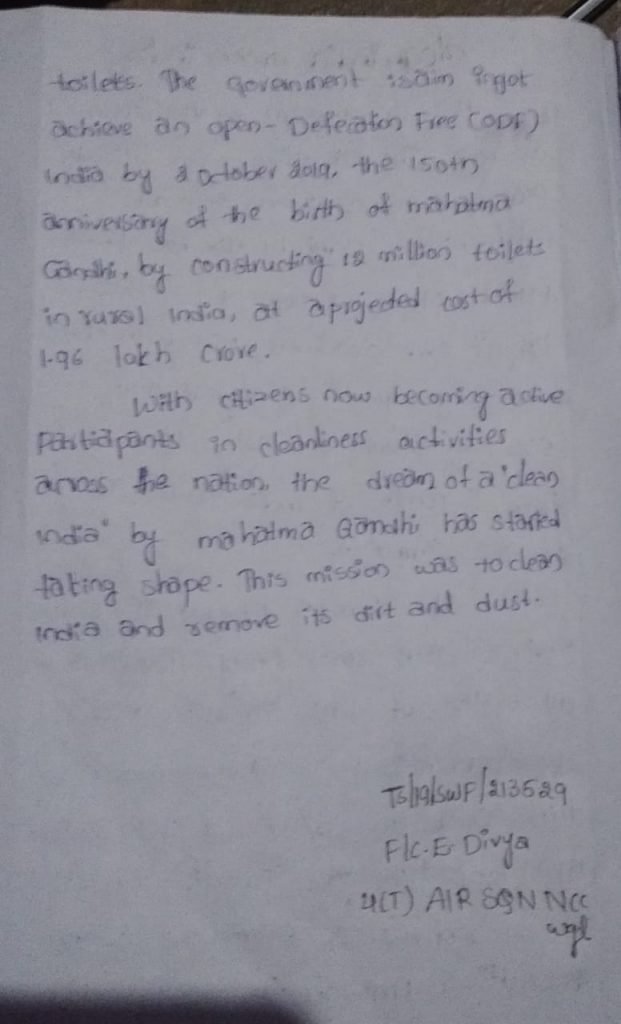 toilets. The government is aim ingat
achieve an open-Defecation Free (ODF)
india by 2 october 2019, the 150th
anniversary of the birth of mahatma
Gandhi, by constructing 12 million toilets
in rural india, at a projected cost of
1.96 lakh crore.
With citizens now becoming active
Participants in cleanliness activities
across the nation, the dream of a 'clean
india" by mahatma Gandhi has started
taking shape. This mission was to clean
india and remove its dirt and dust.
TS/19/SWF/213529
F/C.E. Divya
4(T) AIR SQN NCC
wgl